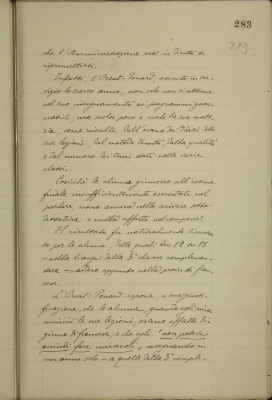 283
283
che l'Amministrazione era in diritto di
ripromettersi.
Infatti, l'Orcat-Ponard assunta in ser-
vizio lo scorso anno, non solo non si attenne
nel suo insegnamento ai programmi gover-
nativi, ma svolse poco e male la sua mate-
ria, come risulta dall'esame dei diari delle
sue lezioni, dal metodo tenuto, dalla qualità
e dal numero dei temi dati nelle varie
classi.
Cosicché le alunne giunsero all'esame
finale insufficientemente esercitate nel
parlare, meno ancora nello scrivere sotto
dettatura e nulla affatto nel comporre.
Il risultato fu naturalmente
so, per le alunne, delle quali ben 12 su 15
- nella licenza della 3ª classe complemen-
tare - caddero appunto nella prova di fran-
cese.
L'Orcat-Ponard espone, a
ficazione, che le alunne, quando egli
minciò le sue lezioni, erano affatto di-
giune di francese, e che egli "non poteva
quindi fare miracoli", insegnando in
un anno solo - a quelle della 3ª comple-